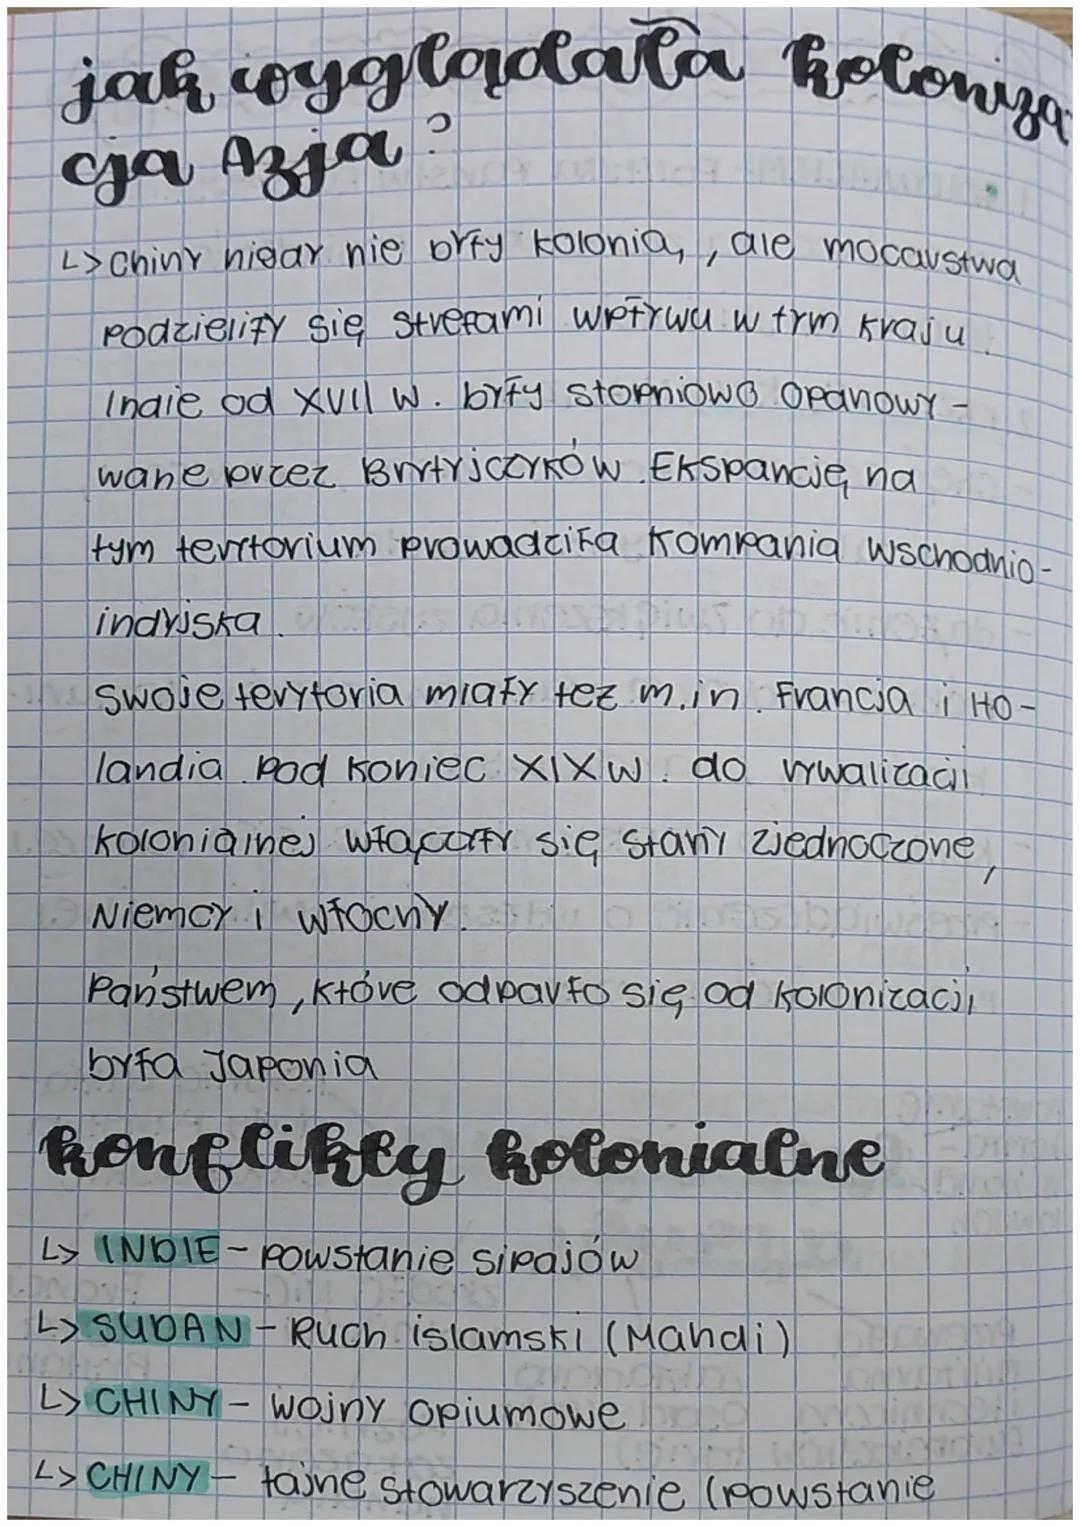 jak wyglądała koloniza
cja Azja?
↳ Chiny nigdy nie były kolonią, ale mocarstwa
podzieliły się strefami wpływu w tym kraju.
Indie od XVII w. były stopniowo opanowy-
wane przez Brytyjczyków. Ekspancję na
tym terytorium prowadziła Kompania Wschodnio-
indyjska.
swoje terytoria miały też m.in. Francja i Ho-
landia. Pod koniec XIX w. do rywalizacji
kolonialnej włączyły się Stany Zjednoczone,
Niemcy i Włochy.
Państwem, które odparło się od kolonizacji,
była Japonia
konflikty kolonialne
↳ INDIE - powstanie sipajów
↳ SUDAN - Ruch islamski (Mahdi)
↳ CHINY - wojny opiumowe
↳ CHINY - tajne stowarzyszenie (powstanie